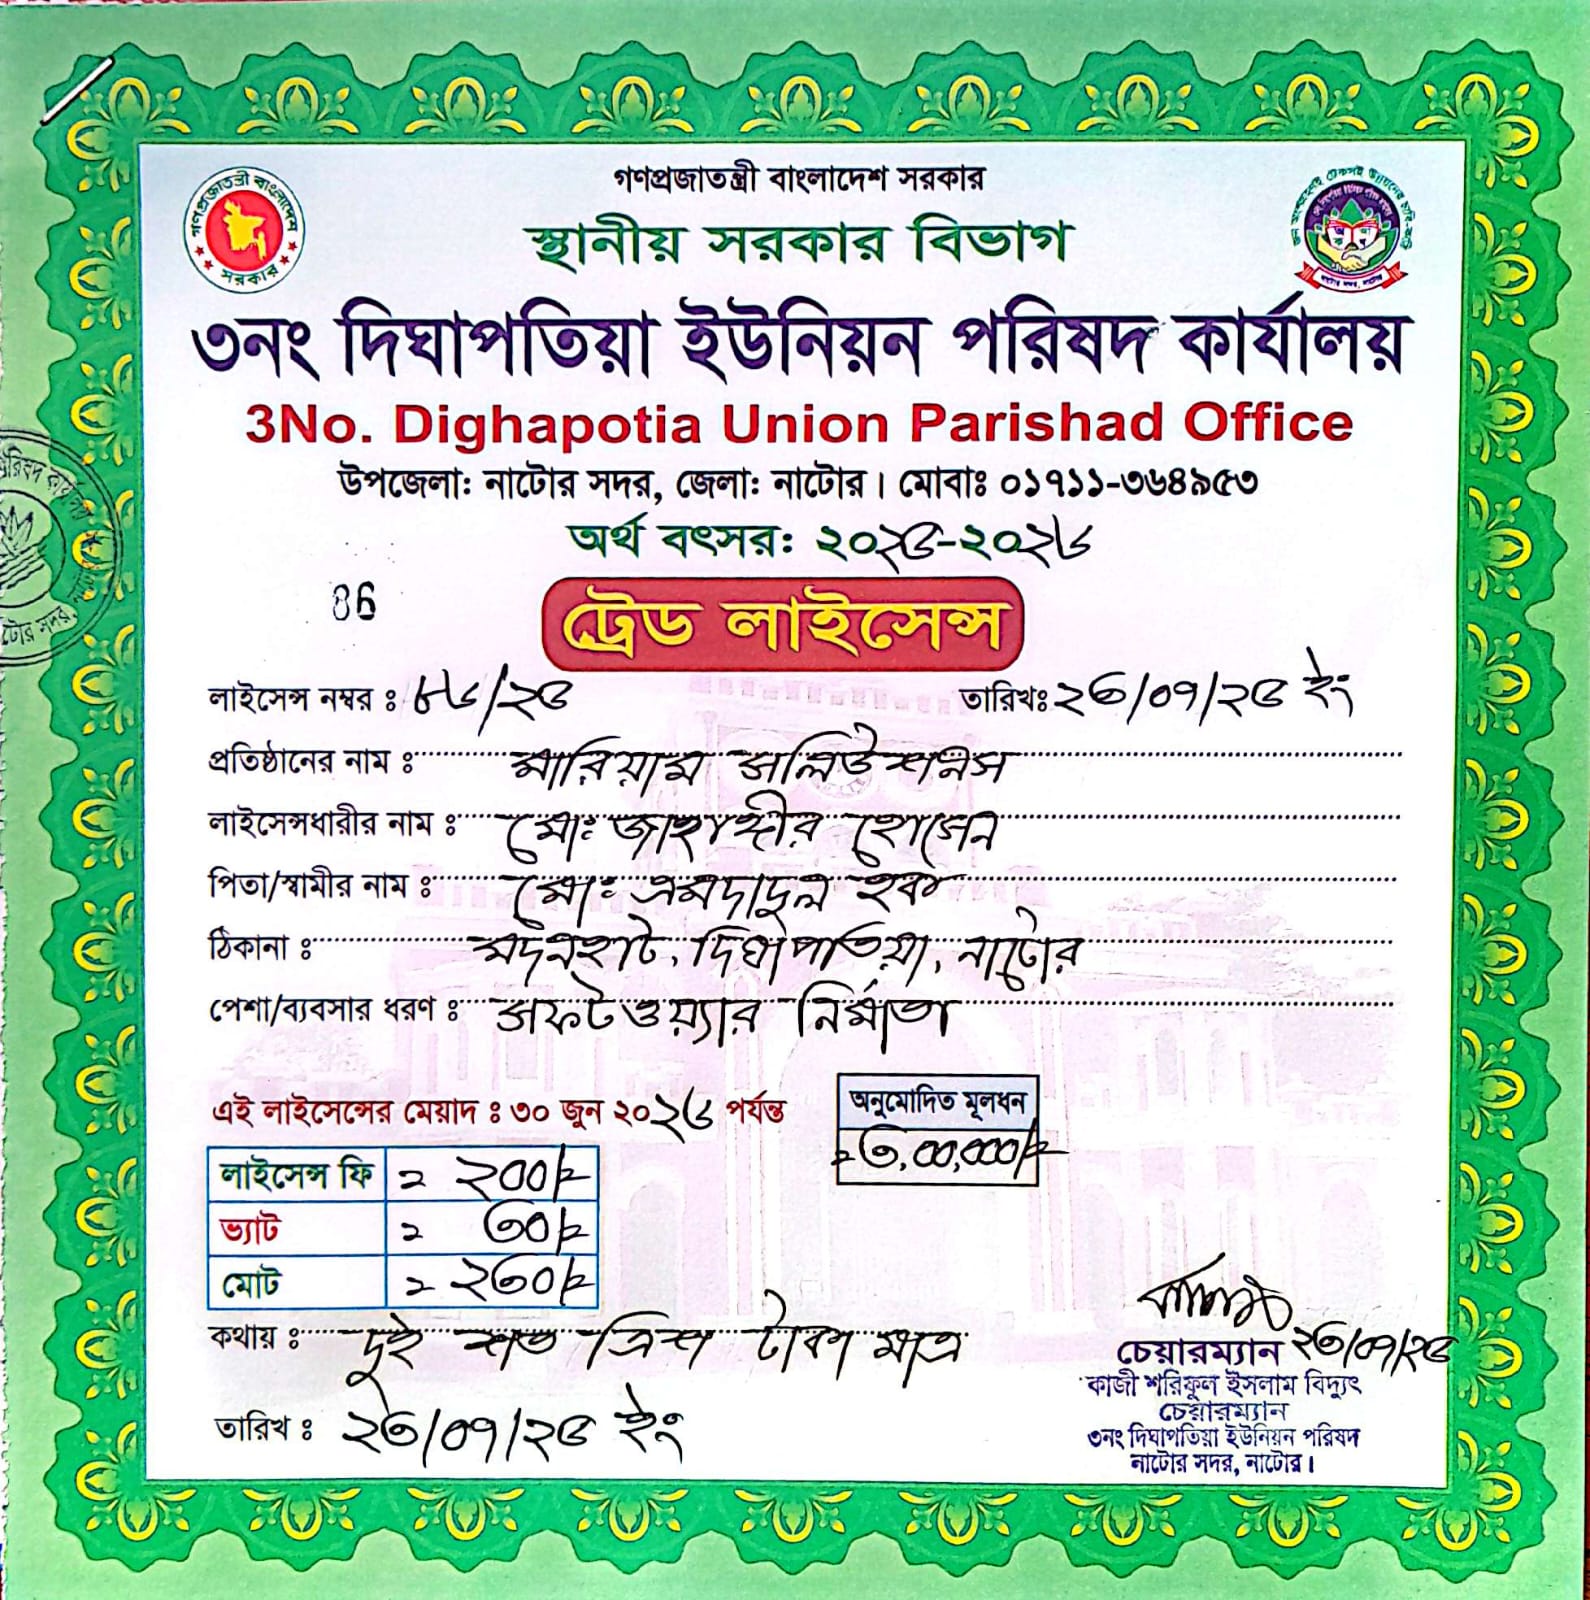 গণপ্রজাতন্ত্রী বাংলাদেশ সরকার
স্থানীয় সরকার বিভাগ
৩নং দিঘাপতিয়া ইউনিয়ন পরিষদ কার্যালয়
3No. Dighapotia Union Parishad Office
উপজেলা: নাটোর সদর, জেলা: নাটোর। মোবাঃ ০১৭১১-৩৬৪৯৫৩
অর্থ বৎসর: ২০২৫-২০২৬
ট্রেড লাইসেন্স
লাইসেন্স নম্বর ঃ ৮৬/২৫ তারিখঃ ২৩/০৭/২৫ ইং
প্রতিষ্ঠানের নাম ঃ মারিয়াম সলিউশনস
লাইসেন্সধারীর নাম ঃ মো: জাহাঙ্গীর হোসেন
পিতা/স্বামীর নাম ঃ মো: এমদাদুল হক
ঠিকানা ঃ মদনহাট, দিঘাপতিয়া, নাটোর
পেশা/ব্যবসার ধরণ ঃ সফটওয়্যার নির্মাতা
এই লাইসেন্সের মেয়াদ ঃ ৩০ জুন ২০২৬ পর্যন্ত
অনুমোদিত মূলধন
= ৩,০০,০০০/=
লাইসেন্স ফি = ২০০/=
ভ্যাট = ৩০/=
মোট = ২৩০/=
কথায় ঃ দুই শত ত্রিশ টাকা মাত্র
তারিখ ঃ ২৩/০৭/২৫ ইং
২৩/০৭/২৫
চেয়ারম্যান
কাজী শরিফুল ইসলাম বিদ্যুৎ
চেয়ারম্যান
৩নং দিঘাপতিয়া ইউনিয়ন পরিষদ
নাটোর সদর, নাটোর।
গণপ্রজাতন্ত্রী বাংলাদেশ
সরকার